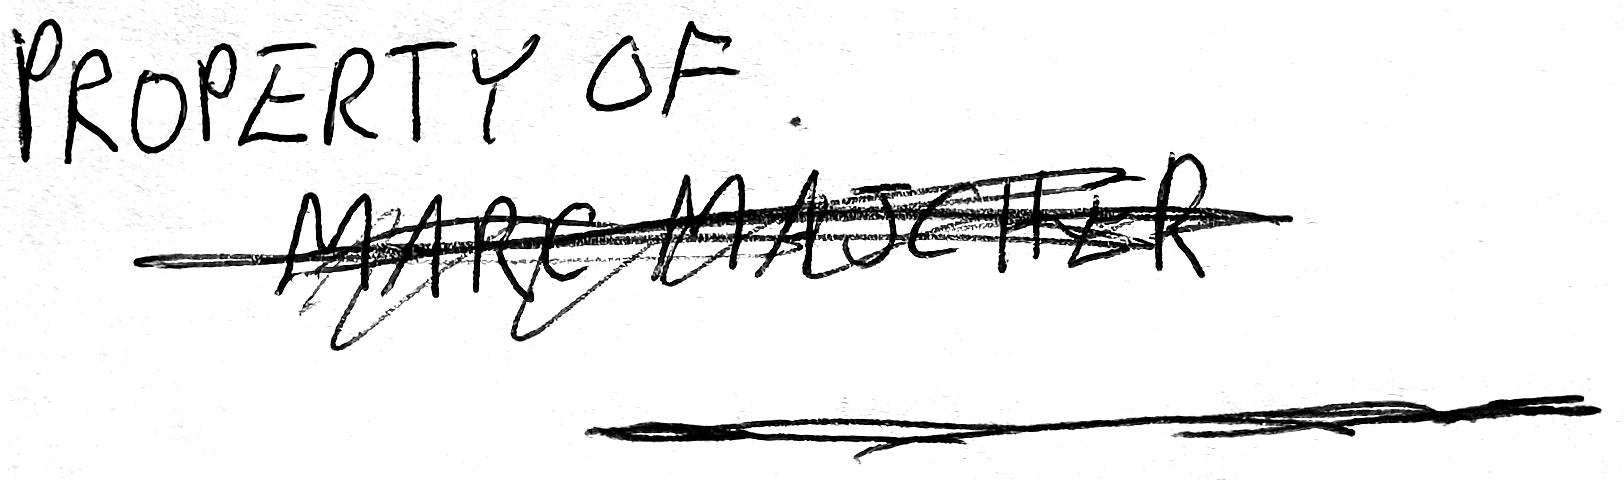 PROPERTY OF
MARC MAJCHER